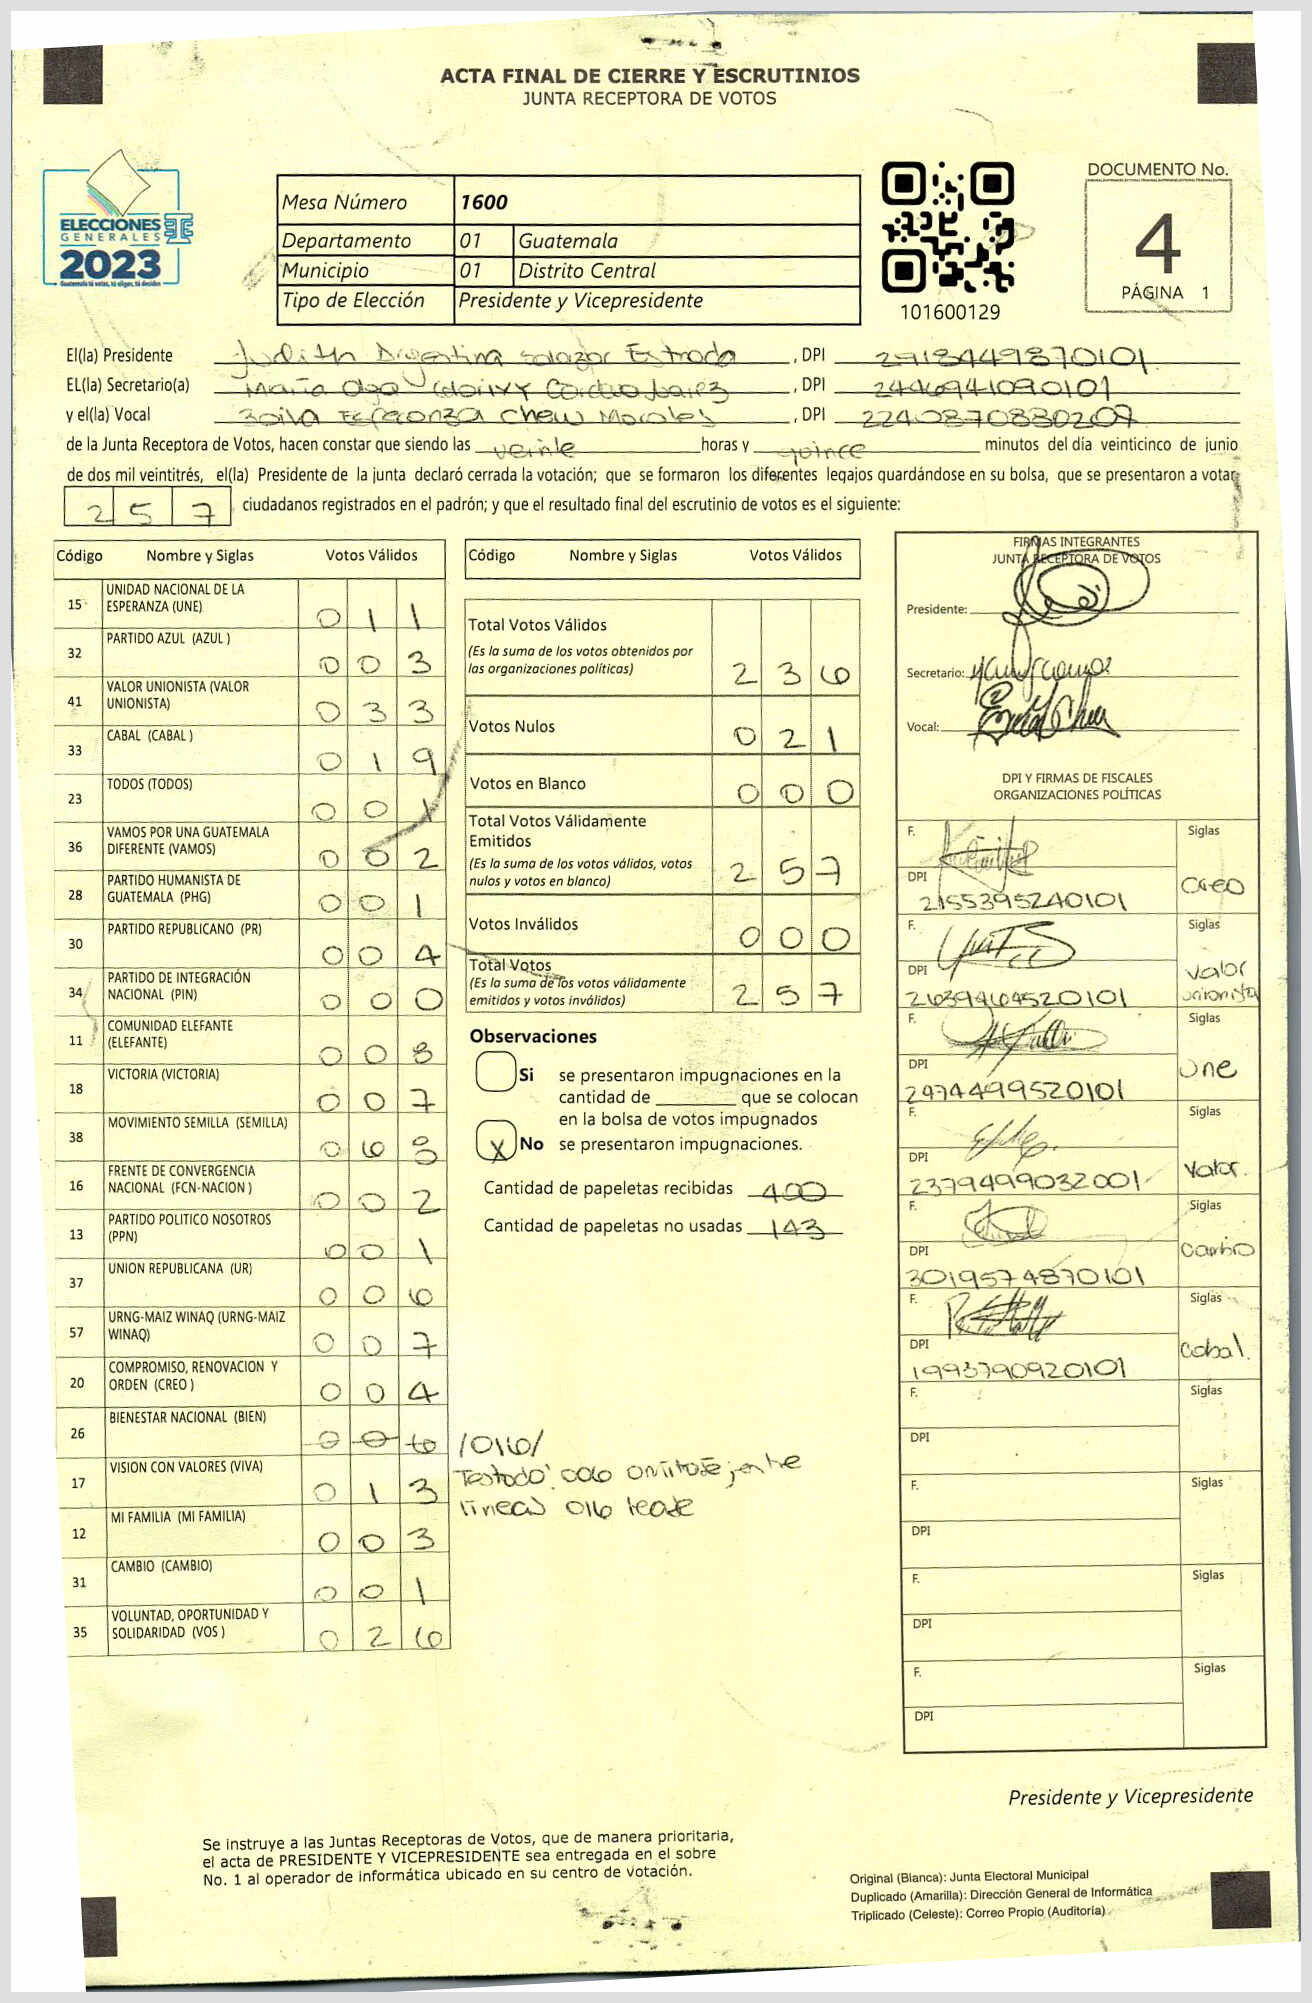 ACTA FINAL DE CIERRE Y ESCRUTINIOS
JUNTA RECEPTORA DE VOTOS
ELECCIONES
GENERALES
2023
Guatemala tú votas, tú eliges, tú decides
Mesa Número 1600
Departamento 01 Guatemala
Municipio 01 Distrito Central
Tipo de Elección Presidente y Vicepresidente
101600129
DOCUMENTO No.
4
PÁGINA 1
El(la) Presidente Judith Argentina Salazar Estrada, DPI 2918449870101
EL(la) Secretario(a) María Olga, DPI 2446941090101
y el(la) Vocal Zoila Esperanza Chew Morales, DPI 2240870880207
de la Junta Receptora de Votos, hacen constar que siendo las veinte horas y quince minutos del día veinticinco de junio
de dos mil veintitrés, el(la) Presidente de la junta declaró cerrada la votación; que se formaron los diferentes legajos quardándose en su bolsa, que se presentaron a votar
257 ciudadanos registrados en el padrón; y que el resultado final del escrutinio de votos es el siguiente:
Código Nombre y Siglas Votos Válidos
15 UNIDAD NACIONAL DE LA
ESPERANZA (UNE) 011
32 PARTIDO AZUL (AZUL ) 003
41 VALOR UNIONISTA (VALOR
UNIONISTA) 033
33 CABAL (CABAL ) 019
23 TODOS (TODOS) 001
36 VAMOS POR UNA GUATEMALA
DIFERENTE (VAMOS) 002
28 PARTIDO HUMANISTA DE
GUATEMALA (PHG) 001
30 PARTIDO REPUBLICANO (PR) 004
34 PARTIDO DE INTEGRACIÓN
NACIONAL (PIN) 000
11 COMUNIDAD ELEFANTE
(ELEFANTE) 008
18 VICTORIA (VICTORIA) 007
38 MOVIMIENTO SEMILLA (SEMILLA) 068
16 FRENTE DE CONVERGENCIA
NACIONAL (FCN-NACION ) 002
13 PARTIDO POLITICO NOSOTROS
(PPN) 001
37 UNION REPUBLICANA (UR) 006
57 URNG-MAIZ WINAQ (URNG-MAIZ
WINAQ) 007
20 COMPROMISO, RENOVACION Y
ORDEN (CREO ) 004
26 BIENESTAR NACIONAL (BIEN) 006 /016/
Testado: 006 omitase; entre
líneas 016 lease
17 VISION CON VALORES (VIVA) 013
12 MI FAMILIA (MI FAMILIA) 003
31 CAMBIO (CAMBIO) 001
35 VOLUNTAD, OPORTUNIDAD Y
SOLIDARIDAD (VOS ) 026
Código Nombre y Siglas Votos Válidos
Total Votos Válidos
(Es la suma de los votos obtenidos por
las organizaciones políticas) 236
Votos Nulos 021
Votos en Blanco 000
Total Votos Válidamente
Emitidos
(Es la suma de los votos válidos, votos
nulos y votos en blanco) 257
Votos Inválidos 000
Total Votos
(Es la suma de los votos válidamente
emitidos y votos inválidos) 257
Observaciones
Si se presentaron impugnaciones en la
cantidad de ________ que se colocan
en la bolsa de votos impugnados
X No se presentaron impugnaciones.
Cantidad de papeletas recibidas 400
Cantidad de papeletas no usadas 143
FIRMAS INTEGRANTES
JUNTA RECEPTORA DE VOTOS
Presidente:
Secretario:
Vocal:
DPI Y FIRMAS DE FISCALES
ORGANIZACIONES POLÍTICAS
F. Siglas
DPI 2155395240101 Creo
F. Siglas
DPI 2639464520101 Valor
unionista
F. Siglas
DPI 2974499520101 Une
F. Siglas
DPI 2379499032001 Valor.
F. Siglas
DPI 3019574870101 Cambio
F. Siglas
DPI 1993790920101 Cabal.
F. Siglas
DPI
F. Siglas
DPI
F. Siglas
DPI
F. Siglas
DPI
Presidente y Vicepresidente
Se instruye a las Juntas Receptoras de Votos, que de manera prioritaria,
el acta de PRESIDENTE Y VICEPRESIDENTE sea entregada en el sobre
No. 1 al operador de informática ubicado en su centro de votación.
Original (Blanca): Junta Electoral Municipal
Duplicado (Amarilla): Dirección General de Informática
Triplicado (Celeste): Correo Propio (Auditoría)